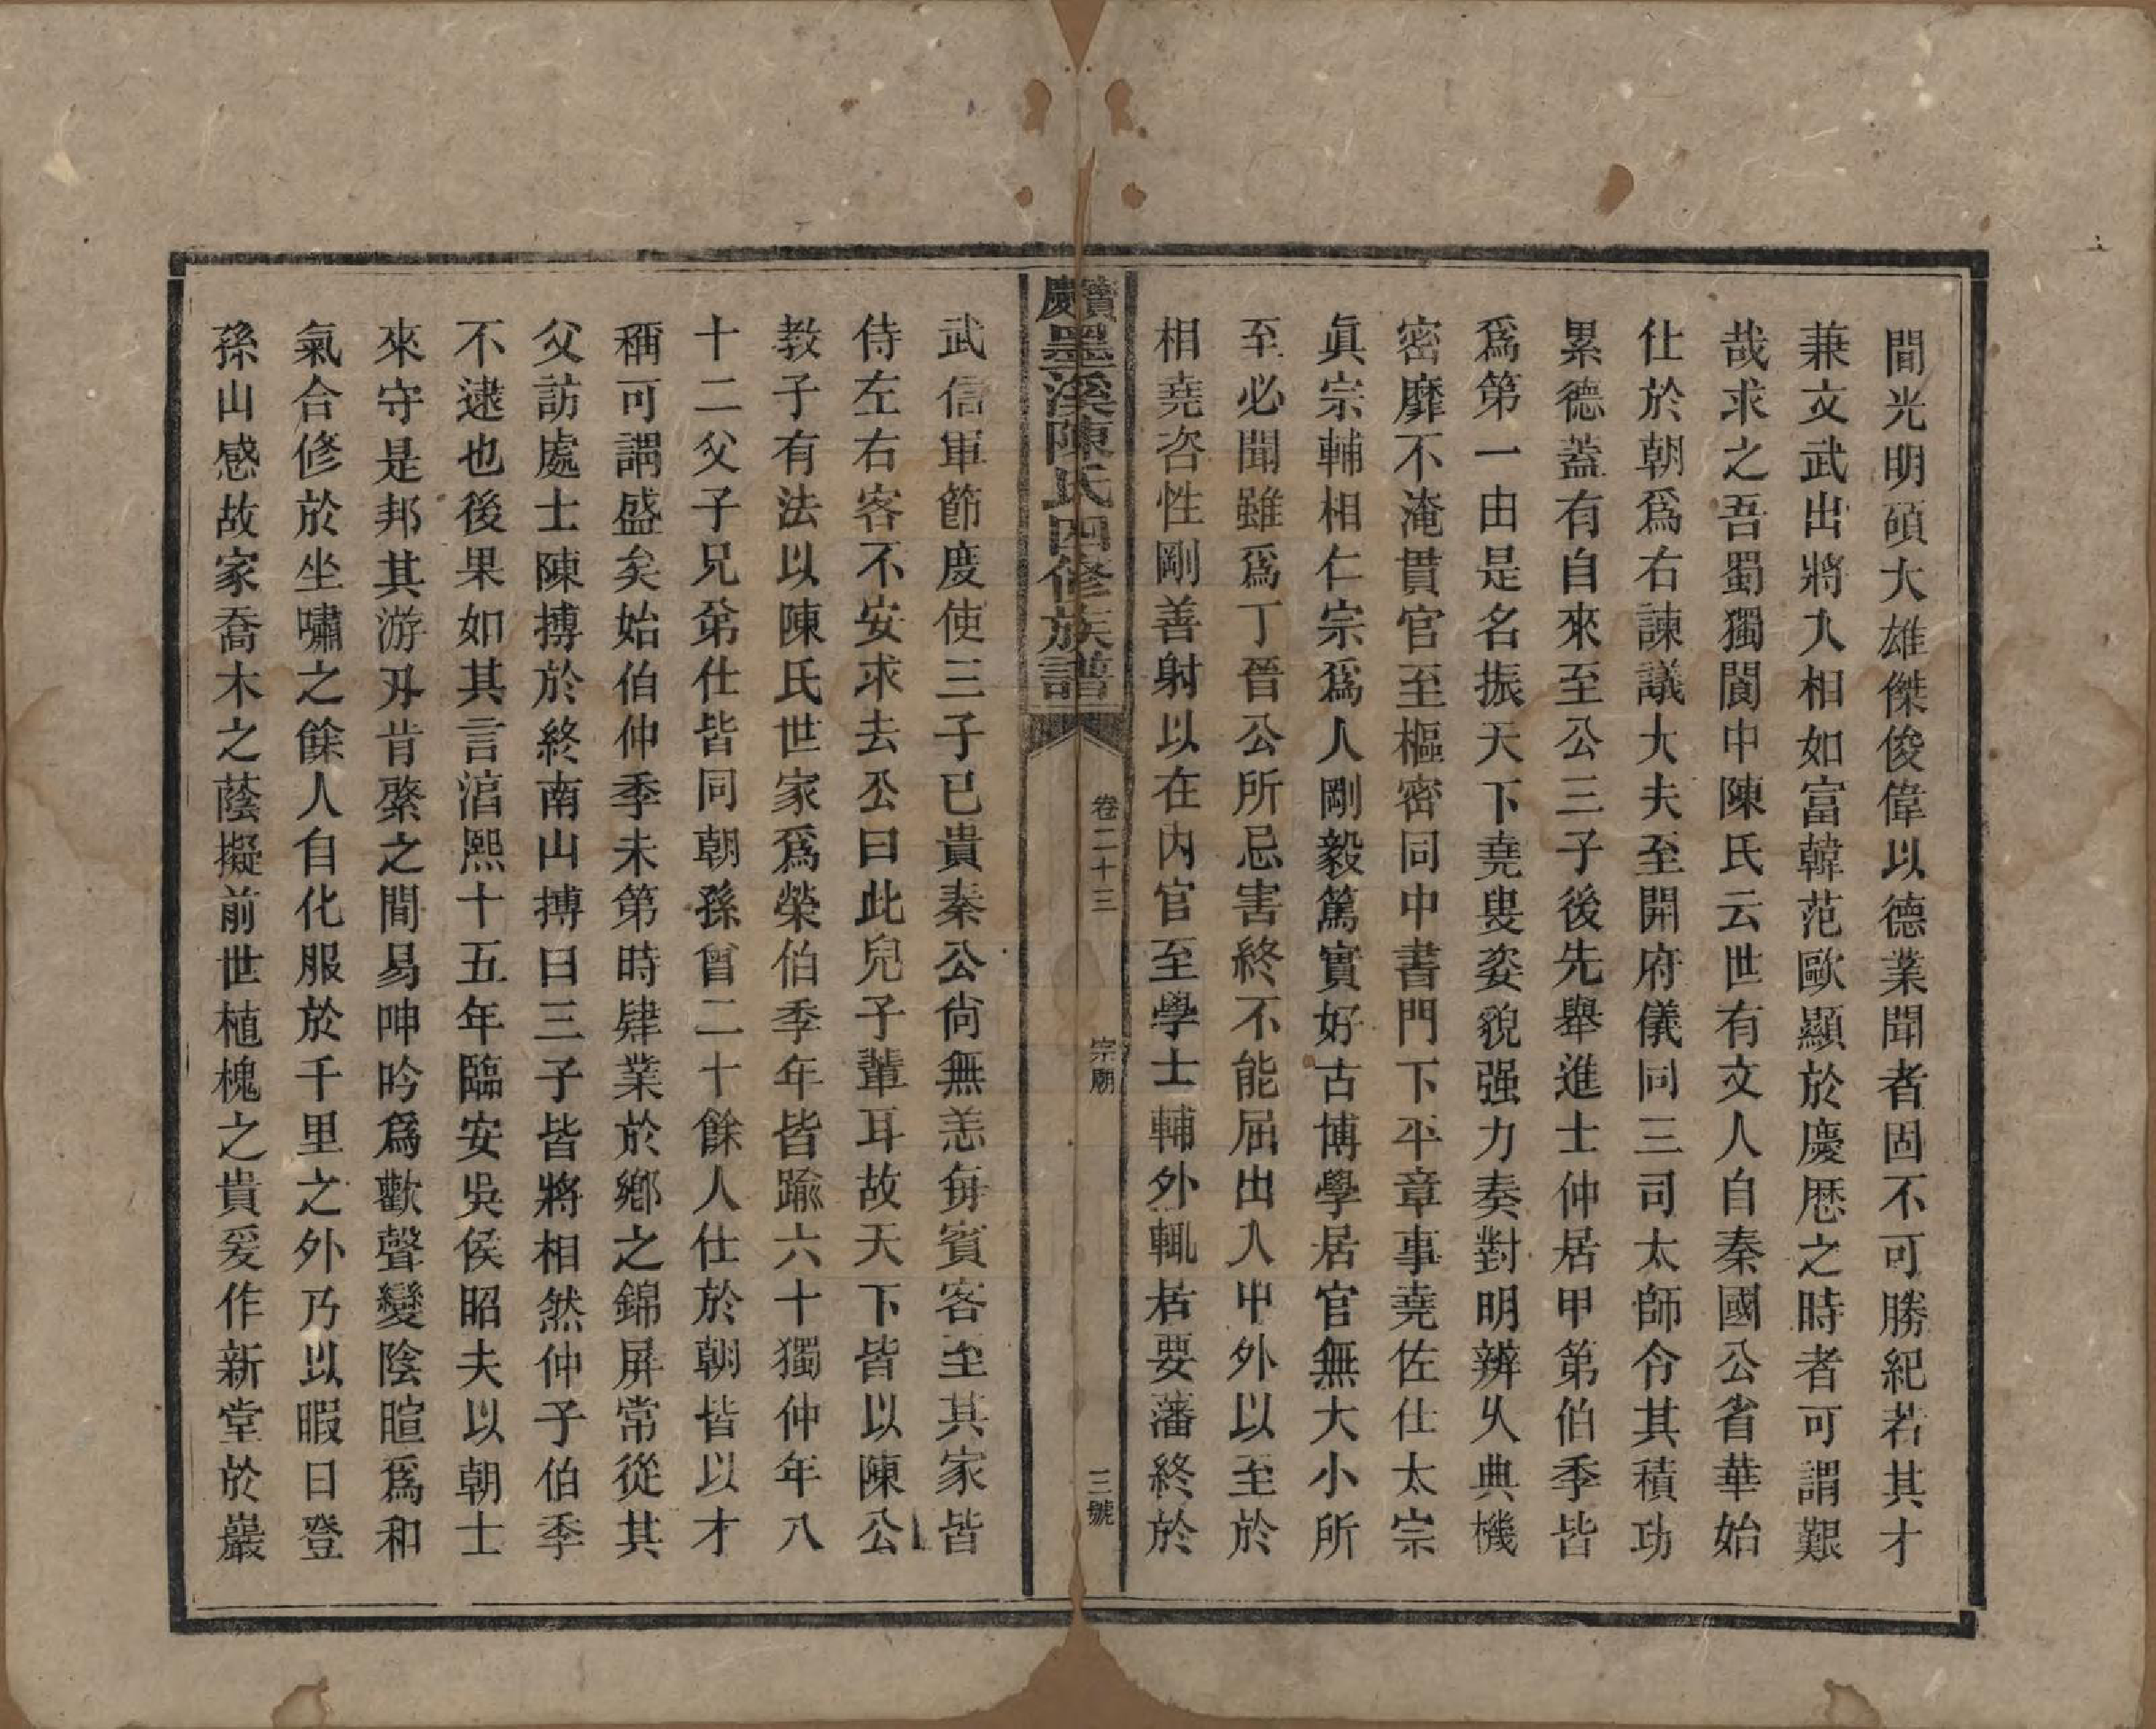 間光明碩大雄傑俊偉以德業聞者固不可勝紀若其才
兼文武出將入相如富韓范歐顯於慶厯之時者可謂艱
哉求之吾蜀獨閬中陳氏云世有文人自秦國公省華始
仕於朝爲右諫議大夫至開府儀同三司太師令其積功
累德蓋有自來至公三子後先舉進士仲居甲第伯季皆
爲第一由是名振天下堯叟姿貌强力奏對明辨乆典機
密靡不淹貫官至樞密同中書門下平章事堯佐仕太宗
眞宗輔相仁宗爲人剛毅篤實好古博學居官無大小所
至必聞雖爲丁晉公所忌害終不能屈出入中外以至於
相堯咨性剛善射以在内官至學士輔外輒桰要藩終於
續慶墨溪陳氏四修族譜 卷二十三 宗廟 三號
武信軍節度使三子已貴秦公尙無恙每賓客至其家皆
侍左右客不安求去公曰此兒子輩耳故天下皆以陳公
教子有法以陳氏世家爲榮伯季年皆踰六十獨仲年八
十二父子兄弟仕皆同朝孫曾二十餘人仕於朝皆以才
稱可謂盛矣始伯仲季未第時肄業於鄉之錦屏常從其
父訪處士陳搏於終南山搏曰三子皆將相然仲子伯季
不逮也後果如其言湻熙十五年臨安吳侯昭夫以朝士
來守是邦其游刃肯綮之間易呻吟爲歡聲變陰暄爲和
氣合修於坐嘯之餘人自化服於千里之外乃以暇日登
孫山感故家喬木之蔭擬前世植槐之貴爰作新堂於巖